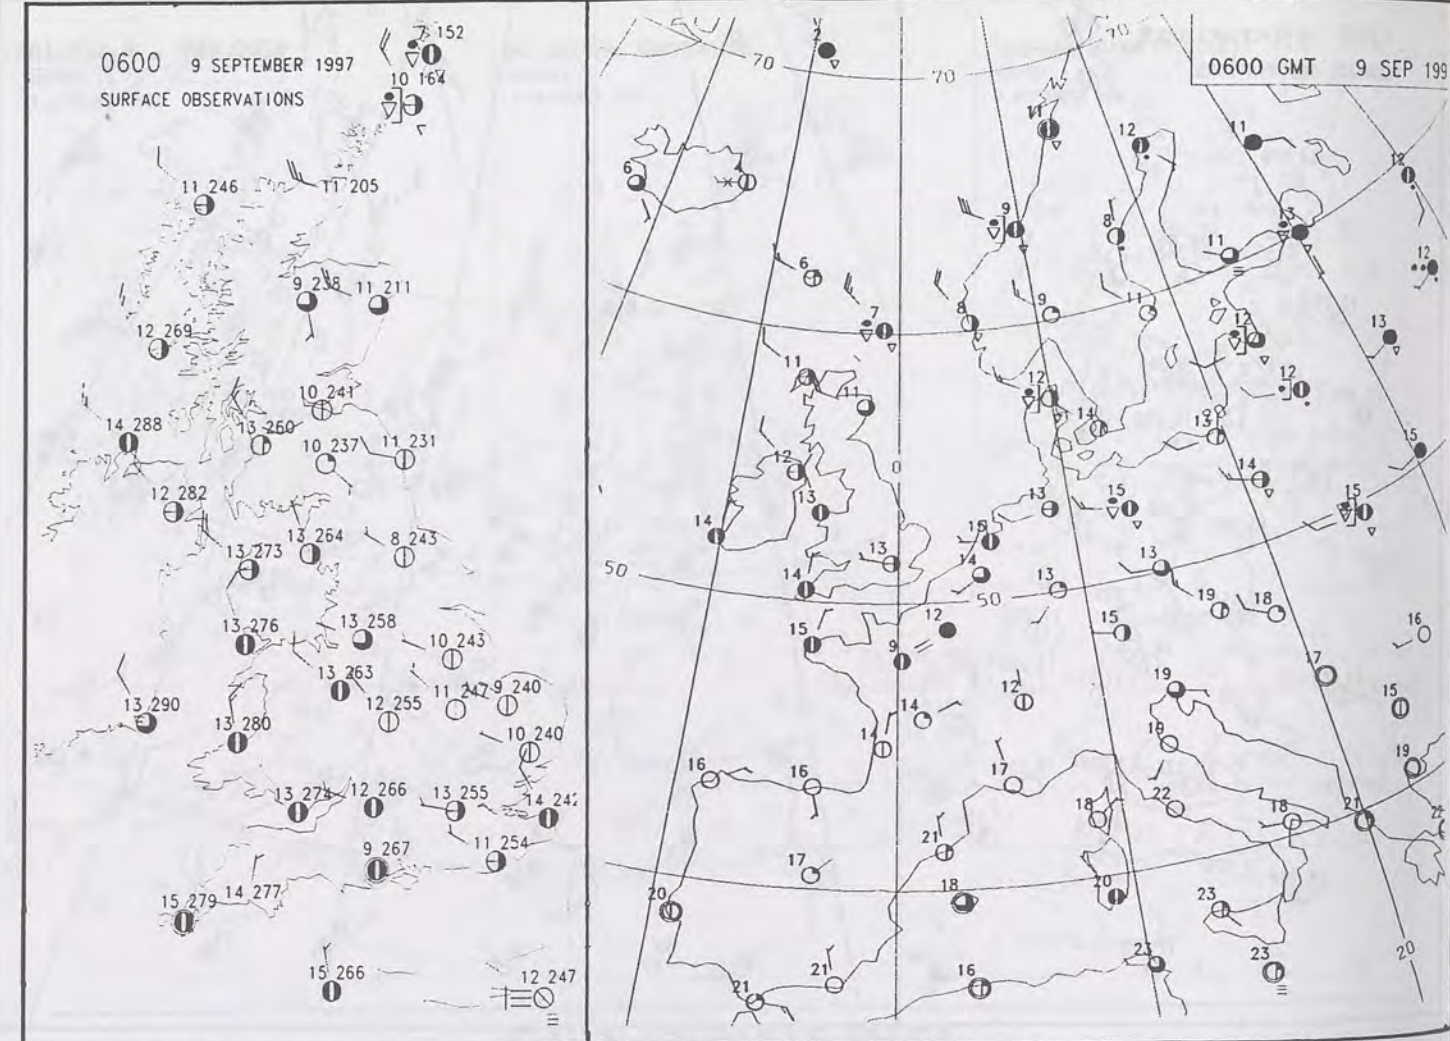 7 152
0600 9 SEPTEMBER 1997
SURFACE OBSERVATIONS
10 164
11 246
11 205
9 238
11 211
12 269
10 241
14 288
13 260
10 237
11 231
12 282
13 273
13 264
8 243
13 276
13 258
10 243
13 263
11 247
9 240
12 255
13 290
13 280
10 240
13 274
12 266
13 255
14 242
11 254
9 267
15 279
14 277
15 266
12 247
0600 GMT 9 SEP 199
2
70
70
70
11
12
11
12
6
4
9
8
13
11
12
6
7
8
9
11
12
13
11
11
12
14
13
12
15
12
0
14
13
14
13
15
13
15
15
14
13
14
50
50
13
13
19
18
15
12
9
15
16
17
12
14
19
15
14
19
19
16
16
17
18
22
18
21
21
17
20
18
20
23
23
23
21
21
16
20